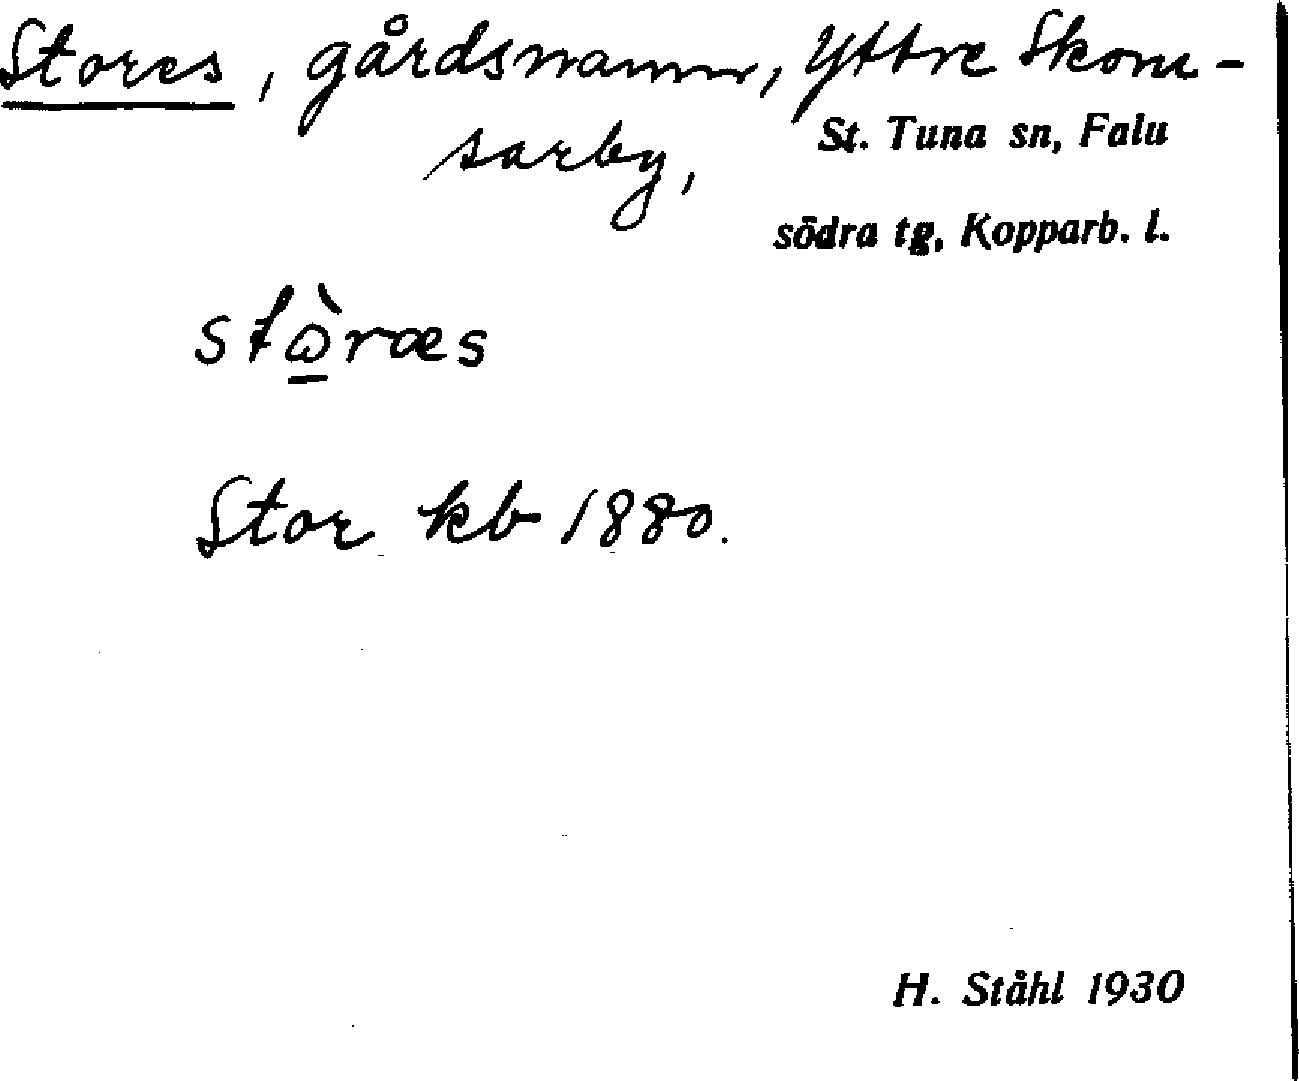 Stores, gårdsnamn, Yttre Skom-
sarby,
St. Tuna sn, Falu
södra tg, Kopparb. l.
stὼ̱ræs
Stor kb 1880.
H. Ståhl 1930